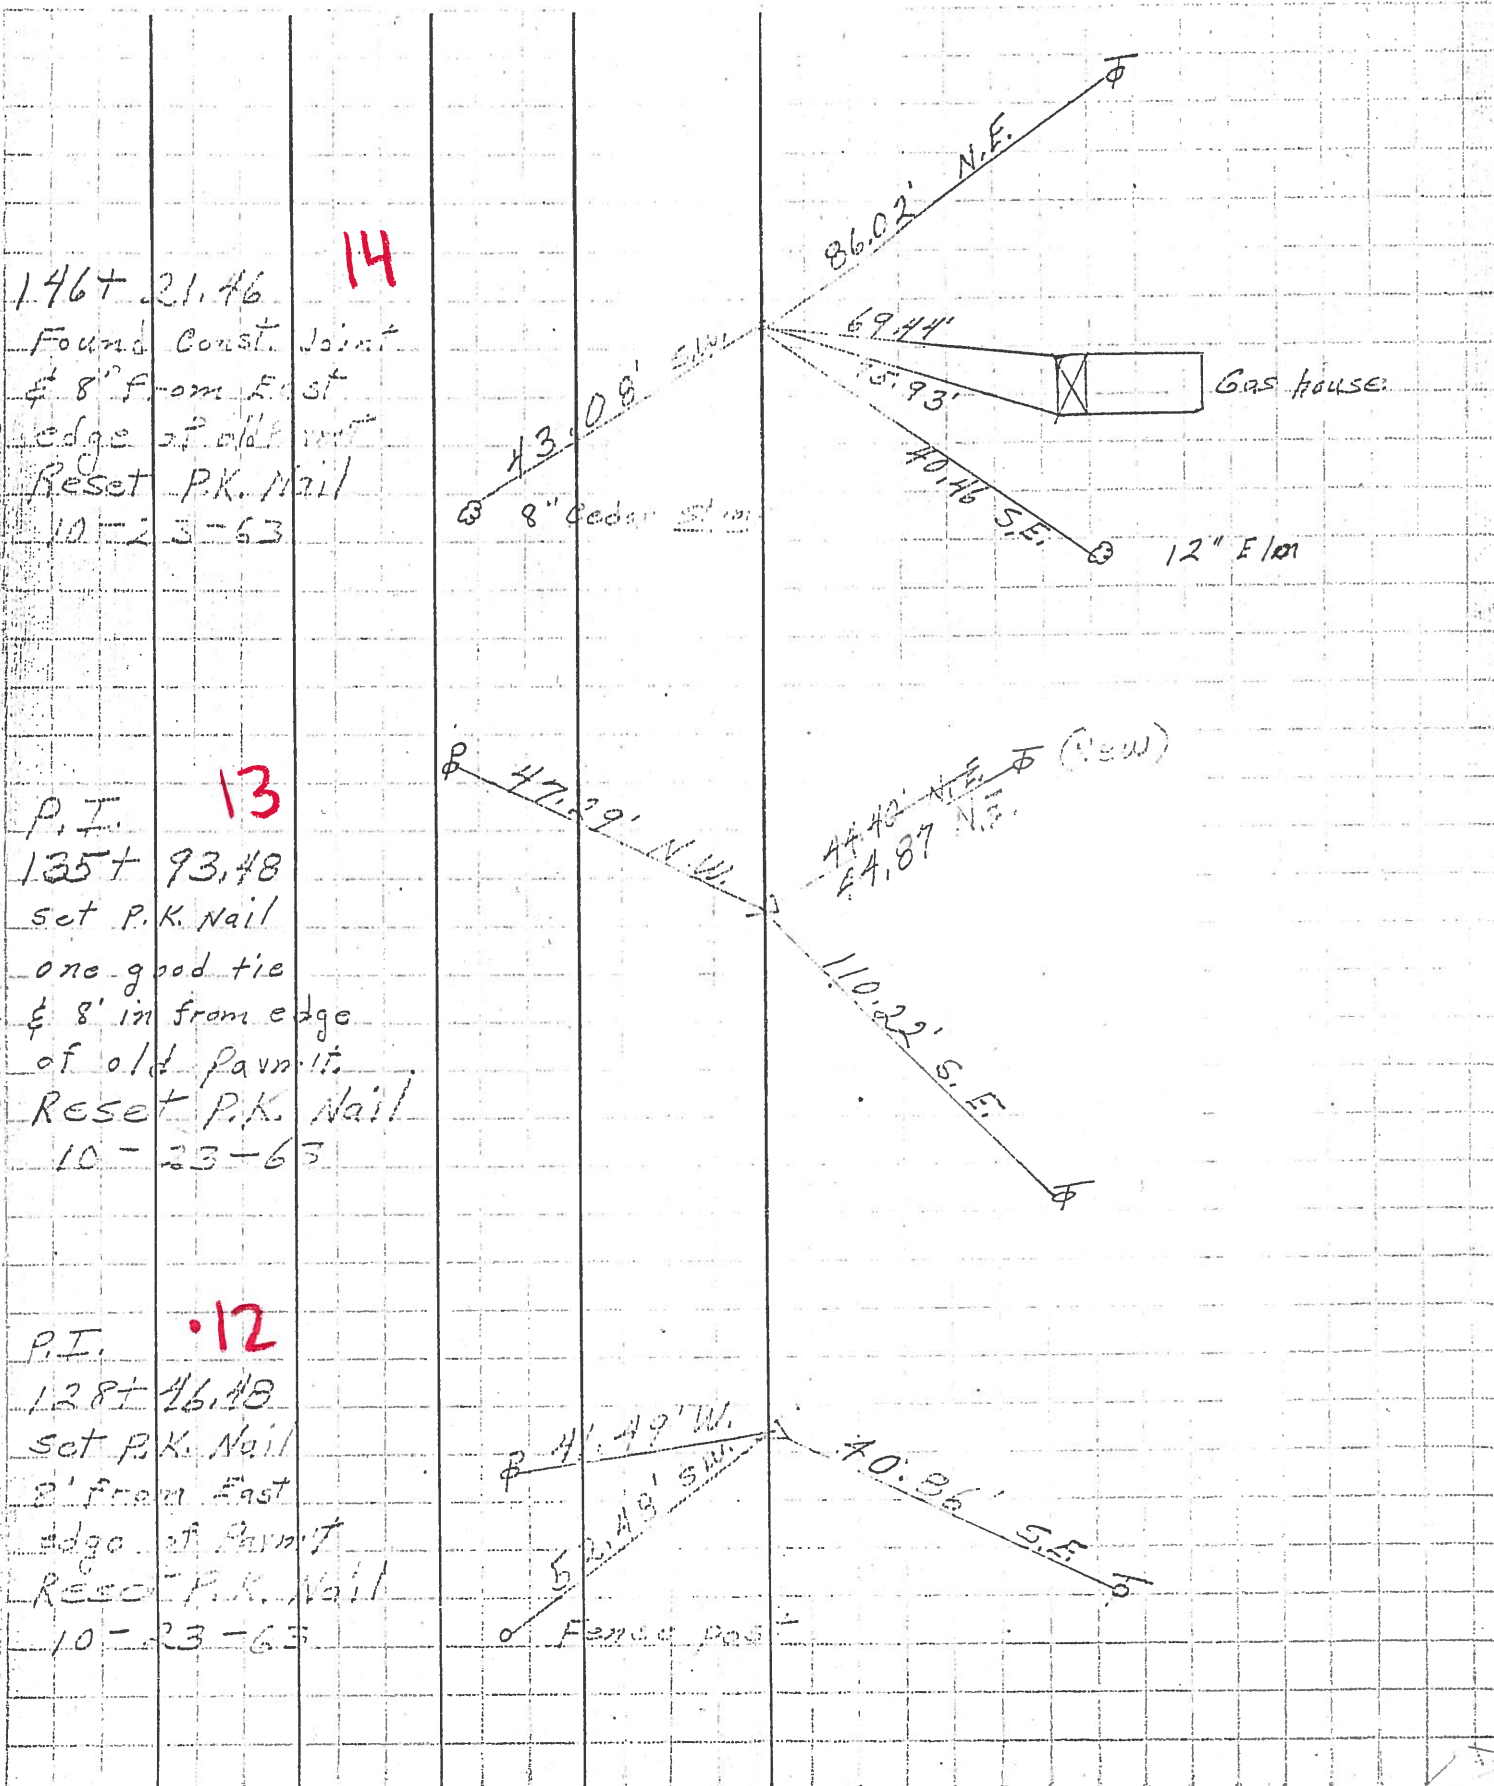 14
146+ 21.46
Found Const. Joint
& 8" from East
edge of old
Reset P.K. Nail
10-23-63
43.08' S.W.
8" Cedar
86.02' N.E.
69.44'
75.93'
Gas house
40.46 S.E.
12" Elm
13
P.I.
135+ 93.48
set P.K. Nail
one good tie
& 8' in from edge
of old Pavm't.
Reset P.K. Nail
10-23-63
47.29' N.W.
44.40' N.E. (New)
N.E.
110.22' S.E.
.12
P.I.
128+ 46.48
set P.K. Nail
8' from East
edge of Pavm't
Reset P.K. Nail
10-23-63
41.49' W.
52.48' S.W.
Fence post
40.86' S.E.